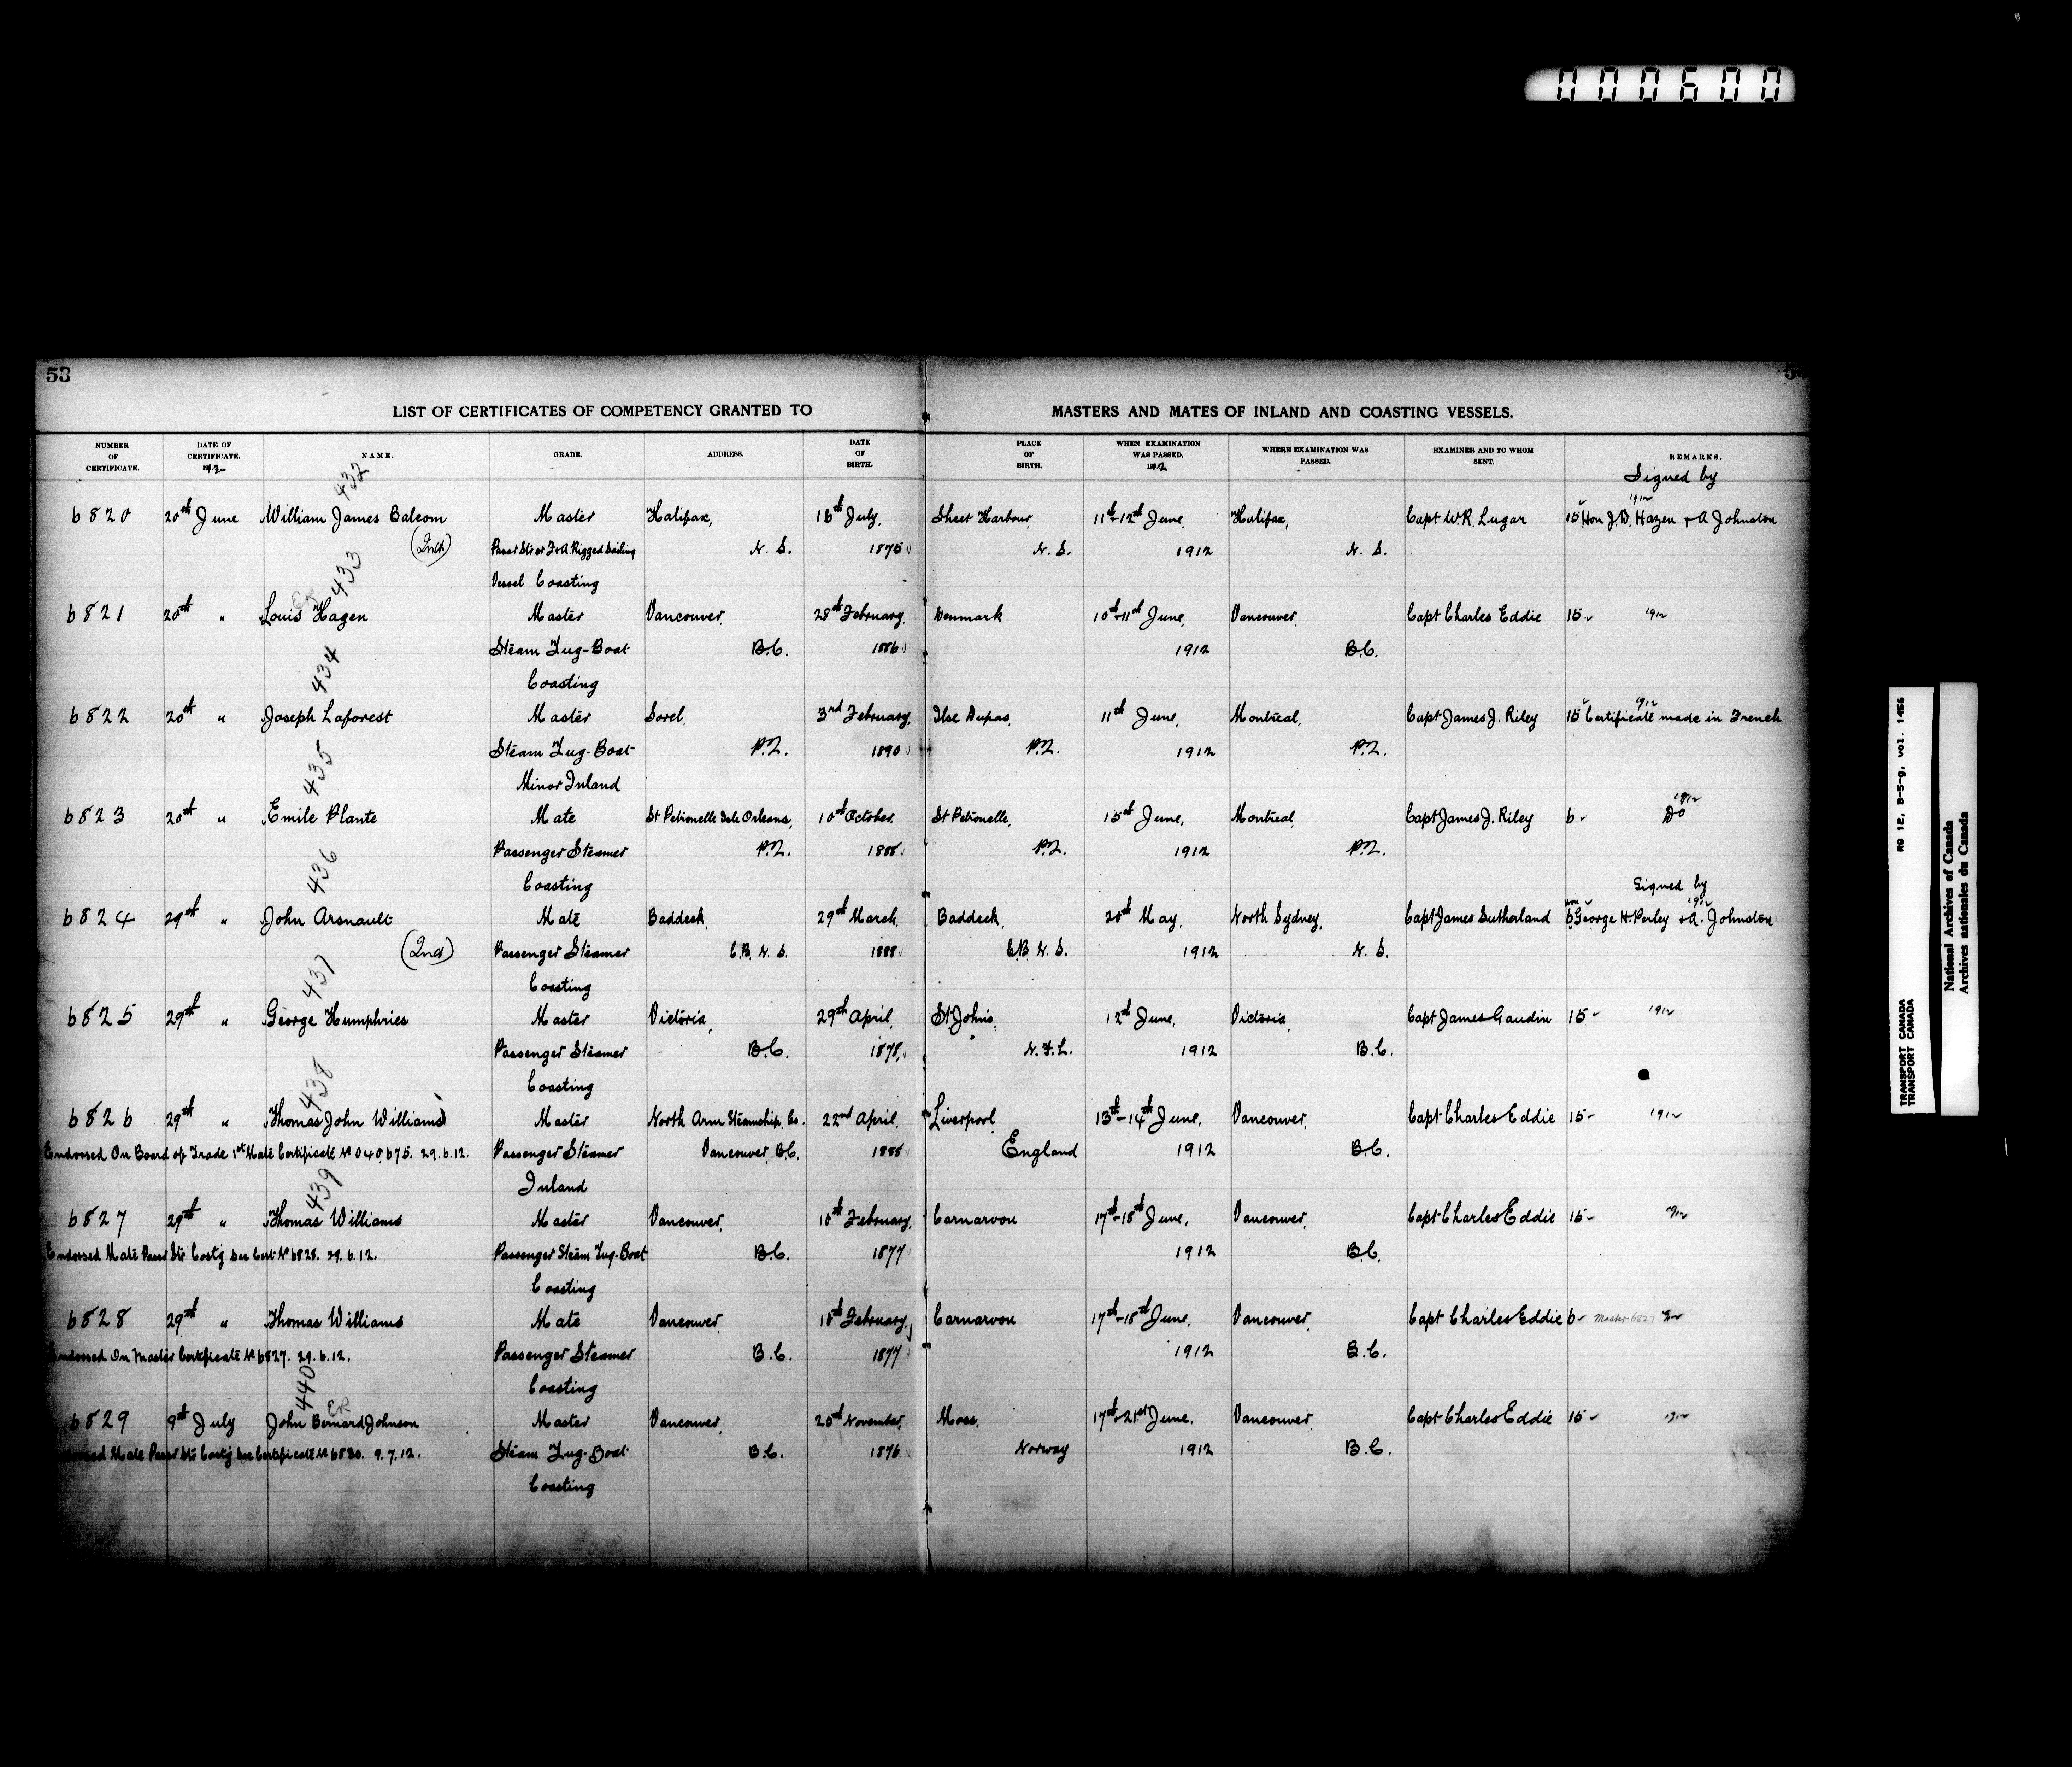 000600
53
LIST OF CERTIFICATES OF COMPETENCY GRANTED TO MASTERS AND MATES OF INLAND AND COASTING VESSELS.
NUMBER OF CERTIFICATE. DATE OF CERTIFICATE. 1912 NAME. GRADE. ADDRESS. DATE OF BIRTH. PLACE OF BIRTH. WHEN EXAMINATION WAS PASSED. 1912 WHERE EXAMINATION WAS PASSED. EXAMINER AND TO WHOM SENT. REMARKS.
432 Signed by
1912
6820 20th June William James Balcom Master Halifax, 16th July, Sheet Harbour, 11th-12th June, Halifax, Capt W.R. Lugar 15 Hon J.D. Hazen + A Johnston
(2nd) Passr Str or F+A. Rigged Sailing N. S. 1875 N. S. 1912 N. S.
433 Vessel Coasting
6821 20th " Louis Hagen Master Vancouver, 28th February, Denmark 10th+11th June, Vancouver, Capt Charles Eddie 15 1912
Steam Tug-Boat B.C. 1886 1912 B.C.
434 Coasting
6822 20th " Joseph Laforest Master Sorel, 3rd February, Ilse Dupas, 11th June, Montreal, Capt James J. Riley 15 Certificate made in French 1912
Steam Tug-Boat P.Q. 1890 P.Q. 1912 P.Q.
435 Minor Inland
6823 20th " Emile Plante Mate St Petronelle Isle Orleans, 10th October, St Petronelle, 15th June, Montreal, Capt James J. Riley 6 Do 1912
Passenger Steamer P.Q. 1888 P.Q. 1912 P.Q.
436 Coasting Signed by
6824 29th " John Arsnault Mate Baddeck, 29th March, Baddeck, 20th May, North Sydney, Capt James Sutherland 6 Hon George H. Perley + A. Johnston 1912
(2nd) Passenger Steamer C.B. N. S. 1888 C.B. N. S. 1912 N. S.
437 Coasting
6825 29th " George Humphries Master Victoria, 29th April, St Johns, 12th June, Victoria, Capt James Gaudin 15 1912
Passenger Steamer B.C. 1878, N.F.L. 1912 B.C.
438 Coasting
6826 29th " Thomas John Williams Master North Arm Steamship, Co. 22nd April, Liverpool, 13th-14th June, Vancouver, Capt Charles Eddie 15 1912
Endorsed On Board of Trade 1st Mate Certificate No 040,675. 29.6.12. Passenger Steamer Vancouver, B.C. 1888 England 1912 B.C.
439 Inland
6827 29th " Thomas Williams Master Vancouver, 18th February, Carnarvon 17th-18th June, Vancouver, Capt Charles Eddie 15 1912
Endorsed Mate Passr Str Coastg See Cert No 6828. 29.6.12. Passenger Steam Tug-Boat B.C. 1877 1912 B.C.
Coasting
6828 29th " Thomas Williams Mate Vancouver, 18th February, Carnarvon 17th-18th June, Vancouver, Capt Charles Eddie 6 Master 6827
Endorsed On Master Certificate No 6827. 29.6.12. Passenger Steamer B.C. 1877 1912 B.C.
440 Coasting
6829 9th July John Bernard Johnson Master Vancouver, 20th November, Moss, 17th-21st June, Vancouver, Capt Charles Eddie 15 1912
Mate Passr Str Coastg See Certificate No 6830. 9.7.12. Steam Tug-Boat B.C. 1876 Norway 1912 B.C.
Coasting
RG 12, B-5-g, vol. 1456
TRANSPORT CANADA
TRANSPORT CANADA
National Archives of Canada
Archives nationales du Canada